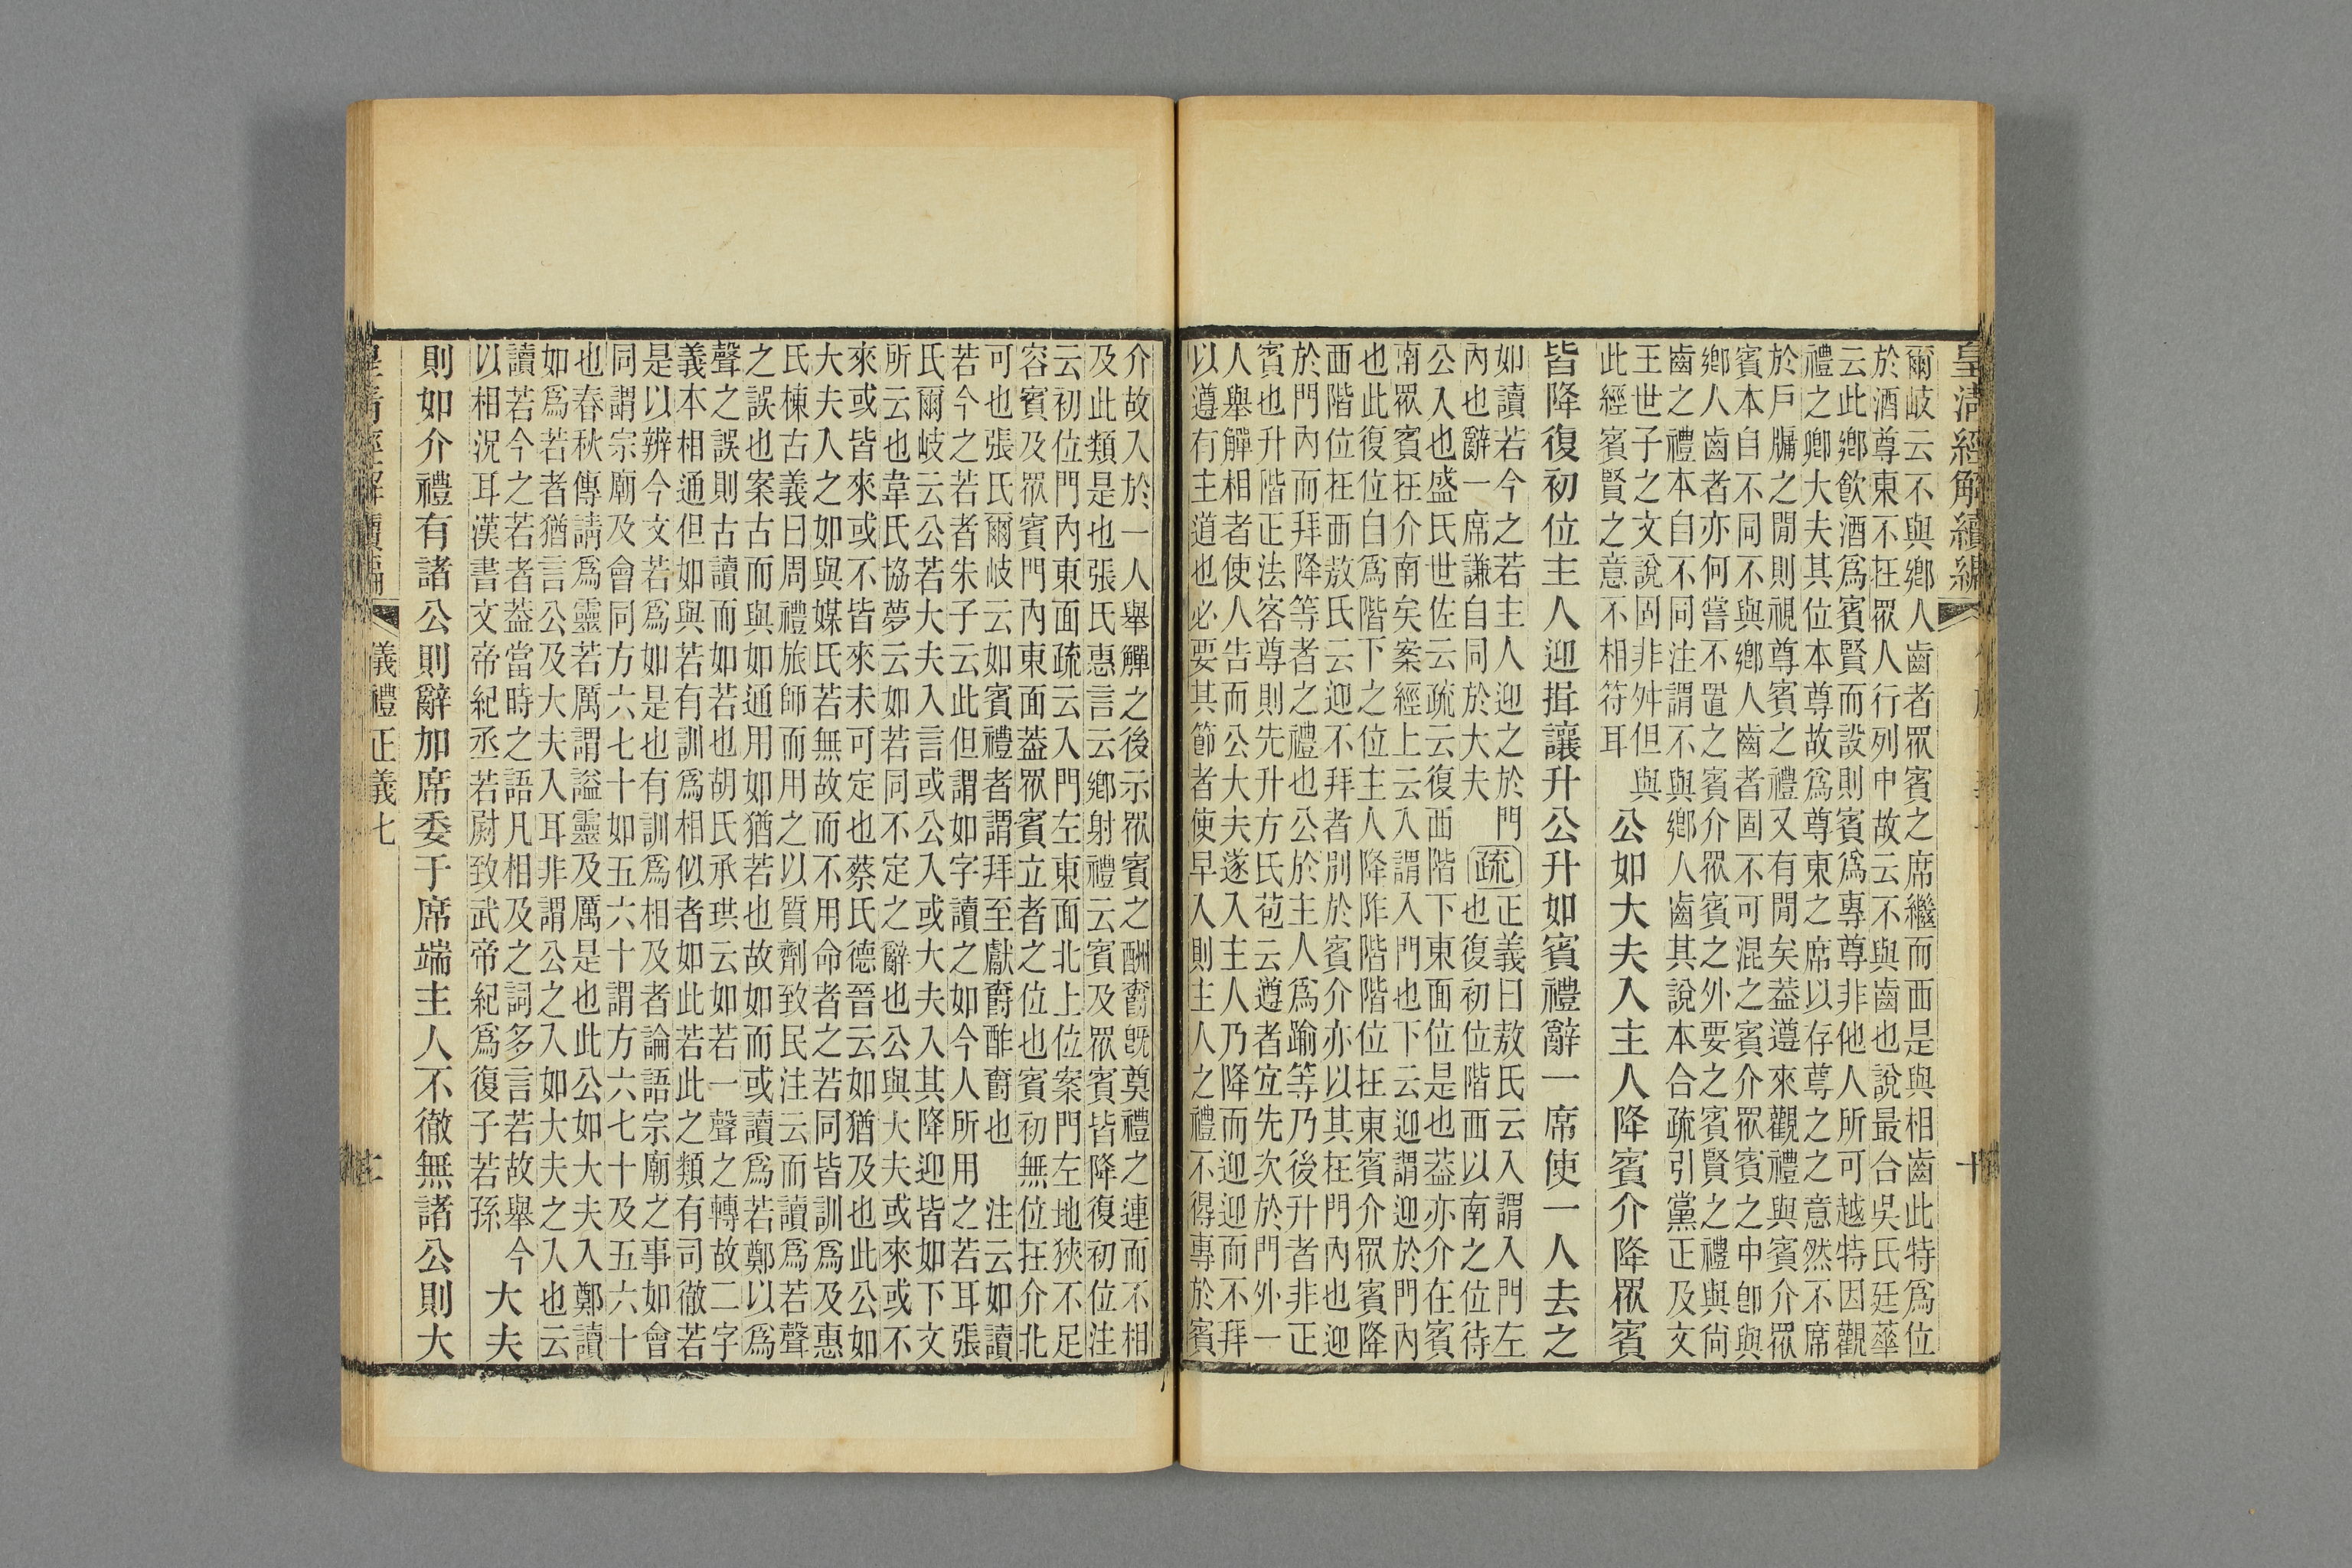 皇清經解續編
十
爾岐云不與鄉人齒者眾賓之席繼而西是與相齒此特為位
於酒尊東不在眾人行列中故云不與齒也說最合吳氏廷華
云此鄉飲酒為賓賢而設則賓為專尊非他人所可越特因觀
禮之鄉大夫其位本尊故為尊東之席以存尊之之意然不席
於戶牖之閒則視尊賓之禮又有閒矣葢遵來觀禮與賓介眾
賓本自不同不與鄉人齒者固不可混之賓介眾賓之中卽與
鄉人齒者亦何嘗不置之賓介眾賓之外要之賓賢之禮與尙
齒之禮本自不同注謂不與鄉人齒其說本合疏引黨正及文
王世子之文說固非舛但與
此經賓賢之意不相符耳
公如大夫入主人降賓介降眾賓
皆降復初位主人迎揖讓升公升如賓禮辭一席使一人去之
如讀若今之若主人迎之於門
內也辭一席謙自同於大夫
疏
正義曰敖氏云入謂入門左
也復初位階西以南之位待
公入也盛氏世佐云疏云復西階下東面位是也葢亦介在賓
南眾賓在介南矣案經上云入謂入門也下云迎謂迎於門內
也此復位自為階下之位主人降阼階階位在東賓介眾賓降
西階位在西敖氏云迎不拜者別於賓介亦以其在門內也迎
於門內而拜降等者之禮也公於主人為踰等乃後升者非正
賓也升階正法客尊則先升方氏苞云遵者宜先次於門外一
人舉觶相者使人告而公大夫遂入主人乃降而迎迎而不拜
以遵有主道也必要其節者使早入則主人之禮不得專於賓
介故入於一人舉觶之後示眾賓之酬爵旣奠禮之連而不相
及此類是也張氏惠言云鄉射禮云賓及眾賓皆降復初位注
云初位門內東面疏云入門左東面北上位案門左地狹不足
容賓及眾賓門內東面葢眾賓立者之位也賓初無位在介北
可也張氏爾岐云如賓禮者謂拜至獻爵酢爵也　注云如讀
若今之若者朱子云此但謂如字讀之如今人所用之若耳張
氏爾岐云公若大夫入言或公入或大夫入其降迎皆如下文
所云也韋氏協夢云如若同不定之辭也公與大夫或來或不
來或皆來或不皆來未可定也蔡氏德晉云如猶及也此公如
大夫入之如與媒氏若無故而不用命者之若同皆訓為及惠
氏棟古義曰周禮旅師而用之以質劑致民注云而讀為若聲
之誤也案古而與如通用如猶若也故如而或讀為若鄭以為
聲之誤則古讀而如若也胡氏承珙云如若一聲之轉故二字
義本相通但如與若有訓為相似者如此若此之類有司徹若
是以辨今文若為如是也有訓為相及者論語宗廟之事如會
同謂宗廟及會同方六七十如五六十謂方六七十及五六十
也春秋傳請為靈若厲謂謚靈及厲是也此公如大夫入鄭讀
如為若者猶言公及大夫入耳非謂公之入如大夫之入也云
讀若今之若者葢當時之語凡相及之詞多言若故舉今
以相況耳漢書文帝紀丞若尉致武帝紀為復子若孫
大夫
則如介禮有諸公則辭加席委于席端主人不徹無諸公則大
儀禮正義七